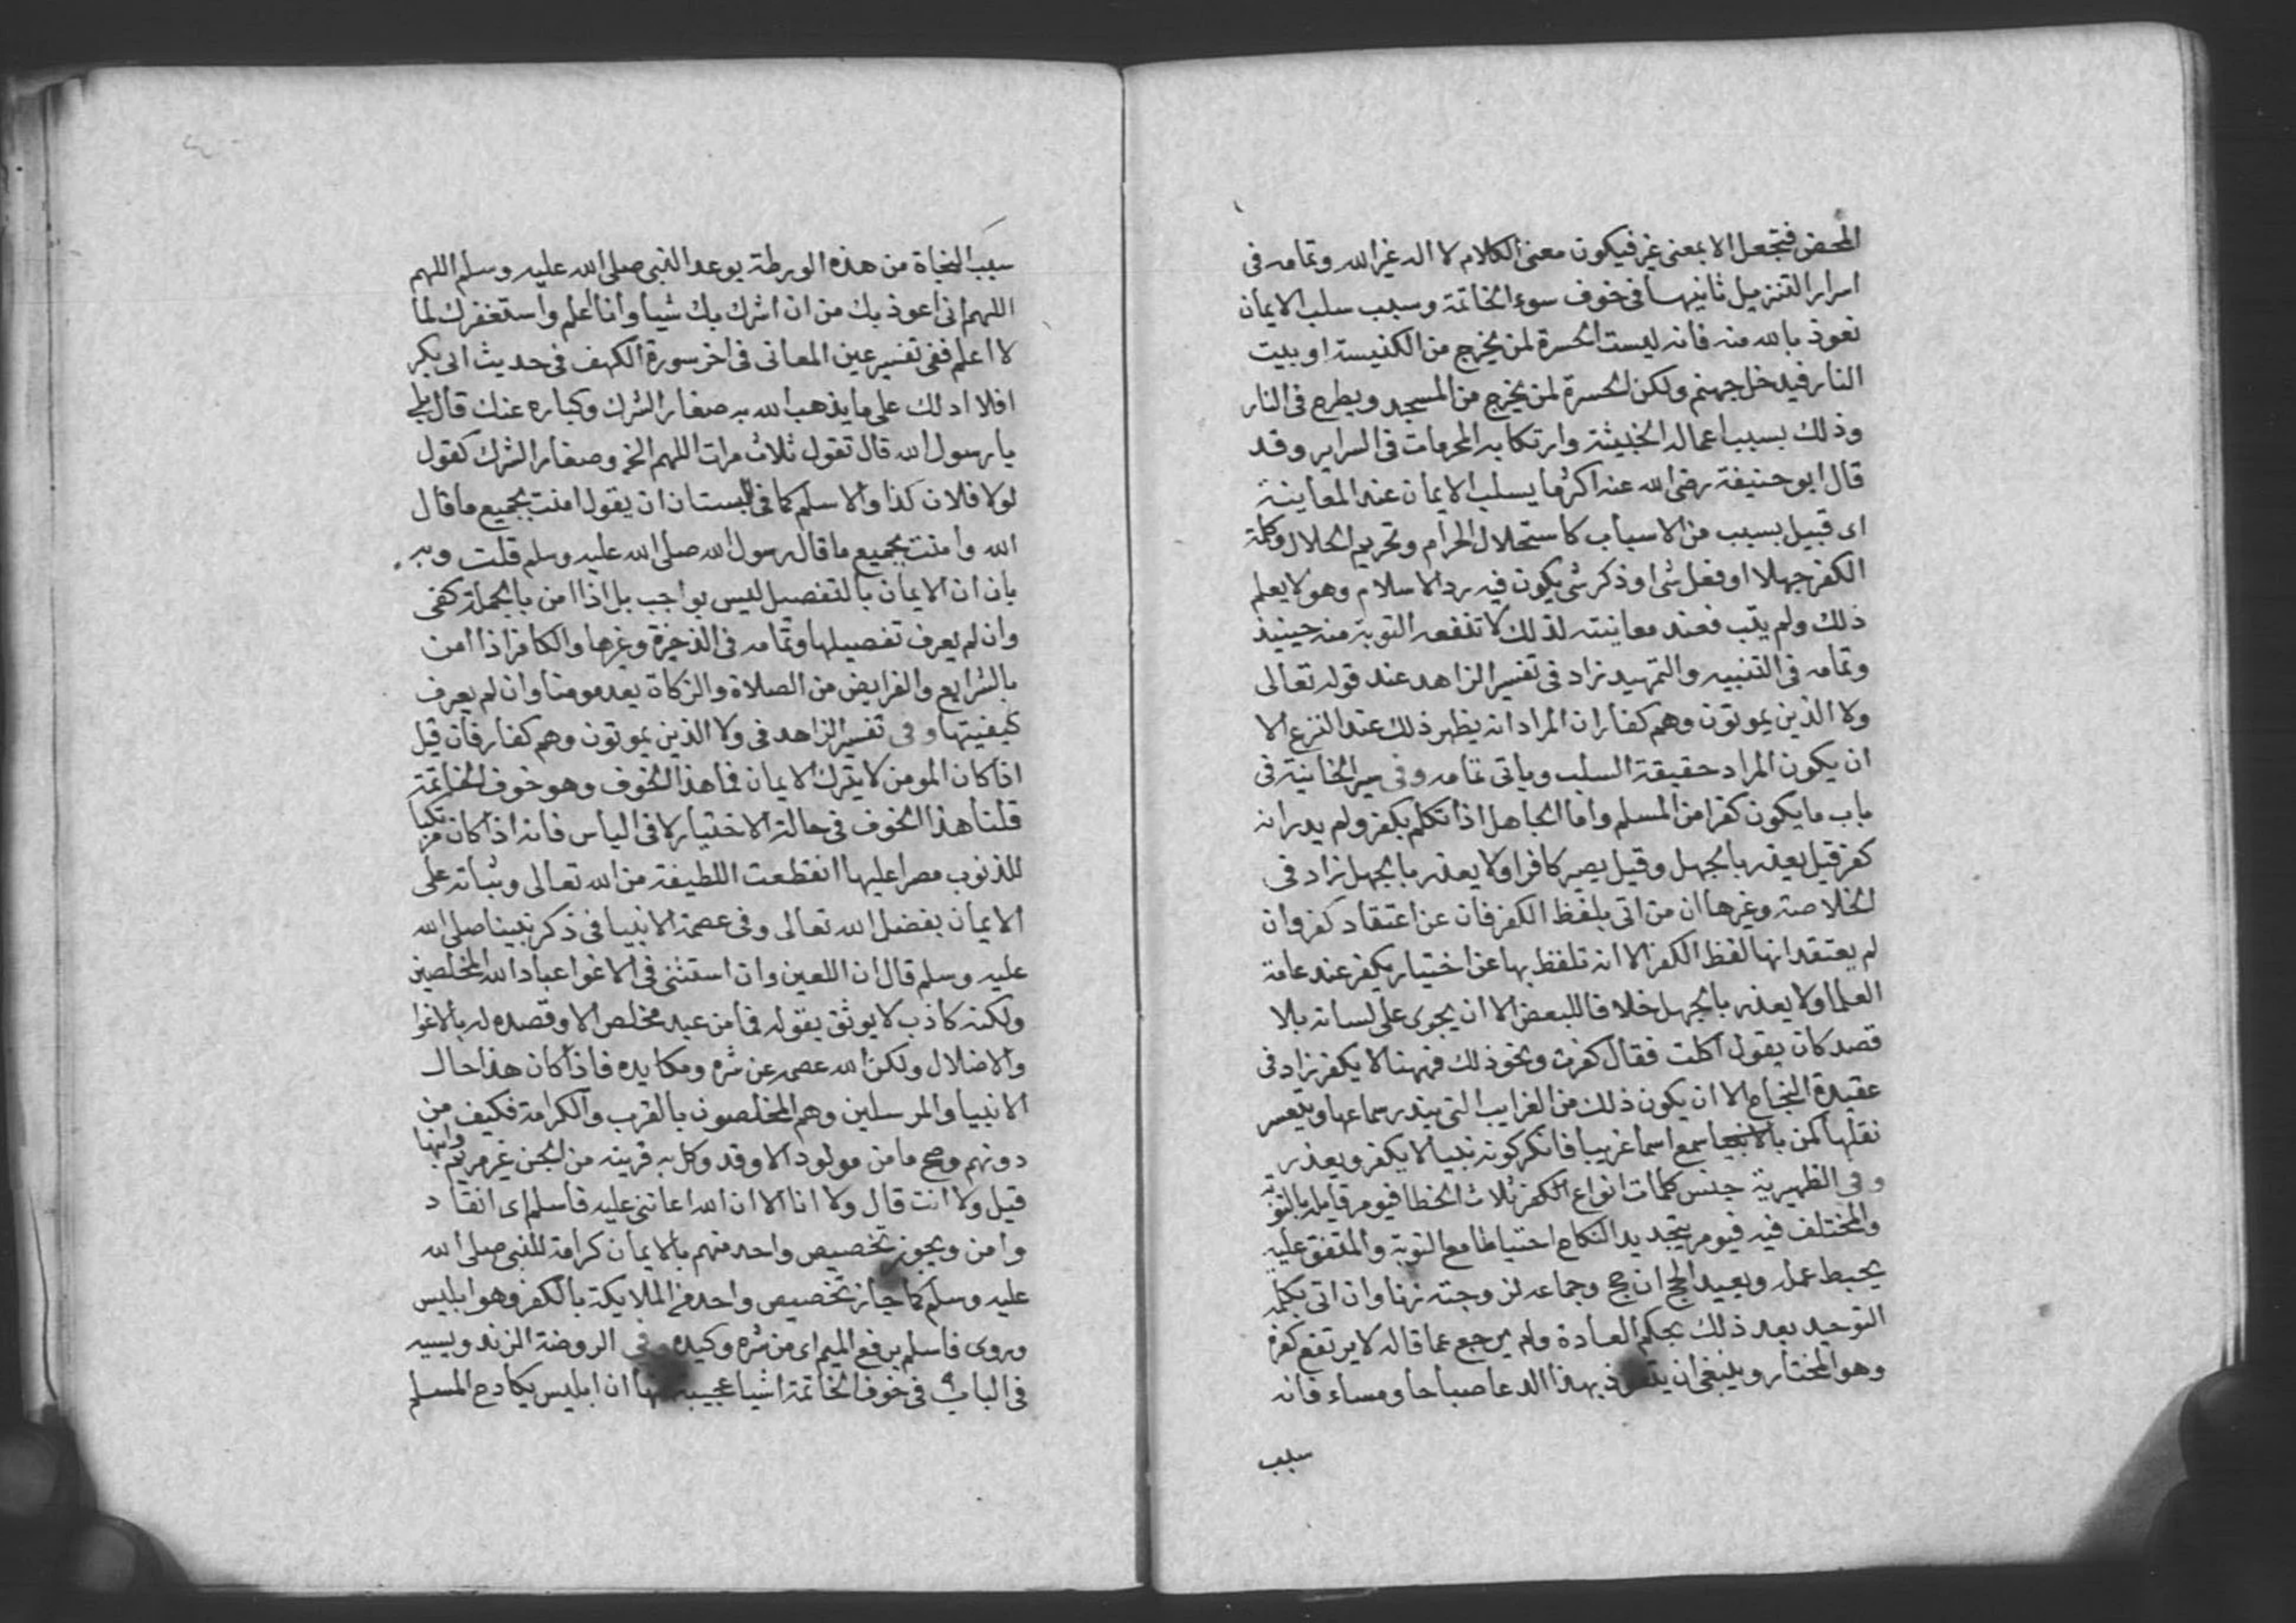 المحض فتجعل الا بمعنى غير فيكون معنى الكلام لا اله غير الله وتمامه فى
اسرار التنزيل ثانيها فى خوف سوء الخاتمة وسبب سلب الايمان
نعوذ بالله منه فانه ليست الحسرة لمن يخرج من الكنيسة او بيت
النار فيدخل جهنم ولكن الحسرة لمن يخرج من المسجد ويطرح فى النار
وذلك بسبب اعماله الخبيثة وارتكابه المحرمات فى السراير وقد
قال ابو حنيفة رضى الله عنه اكثر ما يسلب الايمان عند المعاينة
اى قبيل بسبب من الاسباب كاستحلال الحرام وتحريم الحلال وكلمة
الكفر جهلا او فعل شى او ذكر شى يكون فيه رد الاسلام وهو لا يعلم
ذلك ولم يتب فعند معاينته لذلك لا تنفعه التوبة منه حينيذ
وتمامه فى التنبيه والتمهيد زاد فى تفسير الزاهد عند قوله تعالى
ولا الذين يموتون وهم كفار ان المراد انه يظهر ذلك عند النزع الا
ان يكون المراد حقيقة السلب وياتى تمامه وفى سير الخانية فى
باب ما يكون كفرا من المسلم واما الجاهل اذا تكلم بكفر ولم يدر انه
كفر قيل يعذر بالجهل وقيل يصير كافرا ولا يعذر بالجهل زاد فى
الخلاصة وغيرها ان من اتى بلفظ الكفر فان عن اعتقاد كفر وان
لم يعتقد انها لفظ الكفر الا انه تلفظ بها عن اختيار يكفر عند عامة
العلما ولا يعذر بالجهل خلافا للبعض الا ان يجرى على لسانه بلا
قصد كان يقول اكلت فقال كفرت ونحو ذلك فههنا لا يكفر زاد فى
عقيدة النجاح الا ان يكون ذلك من الغرايب التى يندر سماعها ويتعسر
نقلها كمن بالانبيا سمع اسما غريبا فانكر كونه نبيا لا يكفر ويعذر
وفى الظهيرية جنس كلمات انواع الكفر ثلاث الخطا فيومر قايله بالتوبة
والمختلف فيه فيومر بتجديد النكاح احتياطا مع التوبة والمتفق عليه
يحبط عمله ويعيد الحج ان حج وجماعه لزوجته زنا وان اتى بكلمة
التوحيد بعد ذلك بحكم العادة ولم يرجع عما قاله لا يرتفع كفره
وهو المختار وينبغى ان يتعوذ بهذا الدعا صباحا ومساء فانه
سبب
سبب النجاة من هذه الورطة بوعد النبى صلى الله عليه وسلم اللهم
اللهم انى اعوذ بك من ان اشرك بك شيا وانا اعلم واستغفرك لما
لا اعلم ففى تفسير عين المعانى فى اخر سورة الكهف فى حديث ابى بكر
افلا ادلك على ما يذهب الله به صغار الشرك وكباره عنك قال بلى
يا رسول الله قال تقول ثلاث مرات اللهم الخ وصغار الشرك كقول
لولا فلان كذا والاسلم كما فى البستان ان يقول امنت بجميع ما قال
الله وامنت بجميع ما قال رسول الله صلى الله عليه وسلم قلت وبه
بان ان الايمان بالتفصيل ليس بواجب بل اذا امن بالجملة كفى
وان لم يعرف تفصيلها وتمامه فى الذخيرة وغيرها والكافر اذا امن
بالشرايع والفرايض من الصلاة والزكاة يعد مومنا وان لم يعرف
كيفيتها وفى تفسير الزاهد فى ولا الذين يموتون وهم كفار فان قيل
اذا كان المومن لا يترك الايمان فما هذا الخوف وهو خوف الخاتمة
قلنا هذا الخوف فى حالة الاختيار لا فى الياس فانه اذا كان مرتكبا
للذنوب مصرا عليها انقطعت اللطيفة من الله تعالى وثباته على
الايمان بفضل الله تعالى وفى عصمة الانبيا فى ذكر نبينا صلى الله
عليه وسلم قال ان اللعين وان استثنى فى الاغوا عباد الله المخلصين
ولكنه كاذب لا يوثق بقوله فما من عبد مخلص الا وقصده له بالاغوا
والاضلال ولكن الله عصمه عن شره ومكايده فاذا كان هذا حال
الانبيا والمرسلين وهم المخلصون بالقرب والكرامة فكيف من
دونهم وصح ما من مولود الا وقد وكل به قرينه من الجن غير مريم وابنها
قيل ولا انت قال ولا انا الا ان الله اعاننى عليه فاسلم اى انقاد
وامن ويجوز تخصيص واحد منهم بالايمان كرامة للنبى صلى الله
عليه وسلم كما جاز تخصيص واحد من الملايكة بالكفر وهو ابليس
وروى فاسلم برفع الميم اى من شره وكيده وفى الروضة الزندويسيه
فى الباب فى خوف الخاتمة اشيا عجيبة منها ان ابليس يكادح المسلم